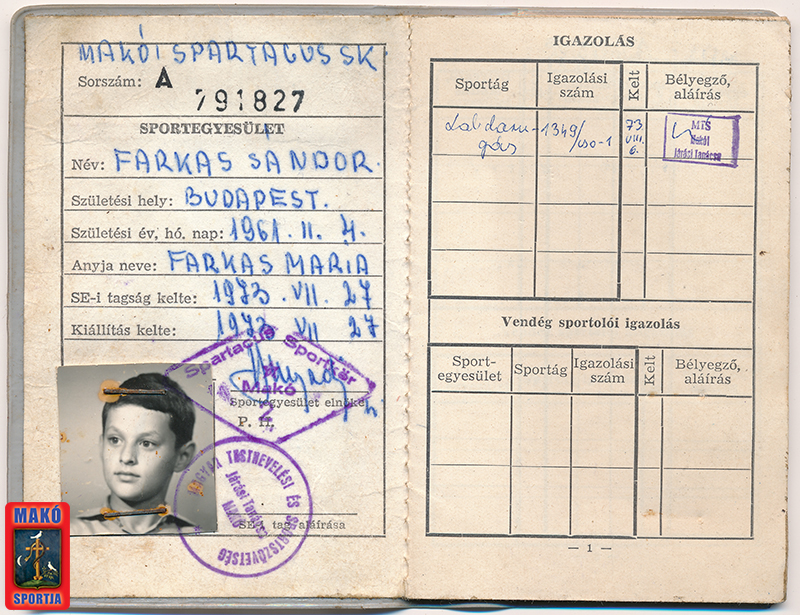 MAKÓI SPARTACUS SK
Sorszám: A
791827
SPORTEGYESÜLET
Név: FARKAS SÁNDOR.
Születési hely: BUDAPEST.
Születési év, hó. nap: 1961. II. 4.
Anyja neve: FARKAS MÁRIA
SE-i tagság kelte: 1973. VII. 27
Kiállítás kelte: 1973. VII 27
Spartacus Sportkör
Makó
Sportegyesület elnöke
P. H.
MAGYAR TESTNEVELÉSI ÉS SPORTSZÖVETSÉG
Járási Tanácsa
MAKÓ
SE-i tag aláírása
MAKÓ
SPORTJA
IGAZOLÁS
Sportág Igazolási szám Kelt Bélyegző, aláírás
Labdarú-
gás
1349/
73.
VIII.
6.
MTS
Makói
Járási Tanácsa
Vendég sportolói igazolás
Sport-egyesület Sportág Igazolási szám Kelt Bélyegző, aláírás
— 1 —